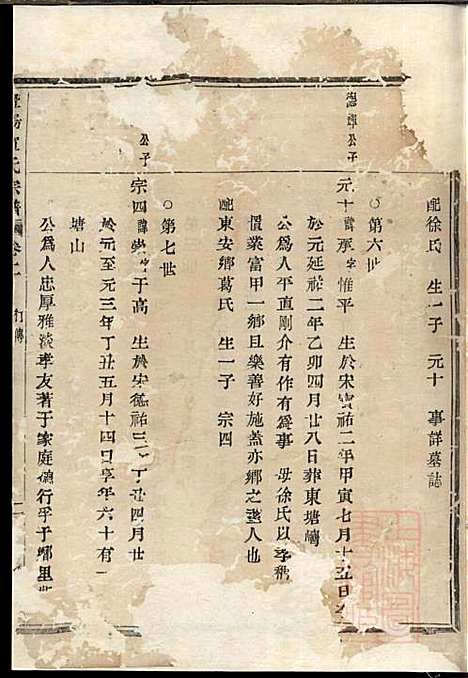 配徐氏 生一子 元十 事詳墓誌
○第六世
公子
元十 諱 字惟平 生於宋寶祐二年甲寅七月十五日
於元延祐二年乙卯四月廿八日葬東塘
公爲人平直剛介有作有爲事 母徐氏以孝稱
恒業富甲一鄉且樂善好施蓋亦鄉之善人也
配東安鄉葛氏 生一子 宗四
○第七世
公子
宗四 諱 字于高 生於宋德祐三 丁丑四月廿
於元至元三年丁丑五月十四日享年六十有
塘山
公爲人忠厚雅淡孝友著于家庭 行孚于鄉里
氏宗譜